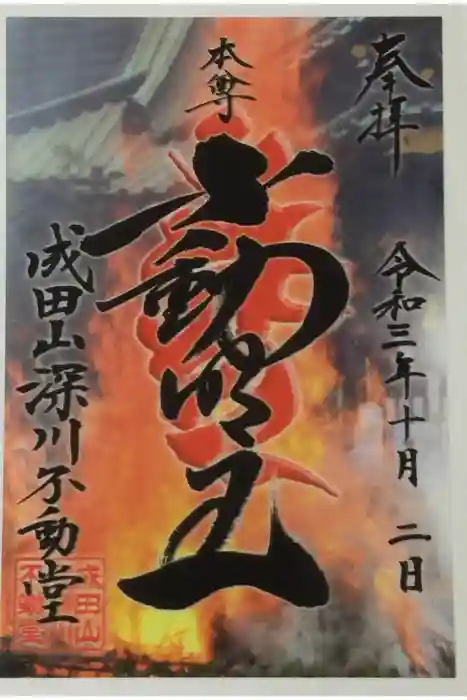 奉拝
令和三年十月二日
本尊
不動明王
成田山深川不動堂
成田山
不動堂